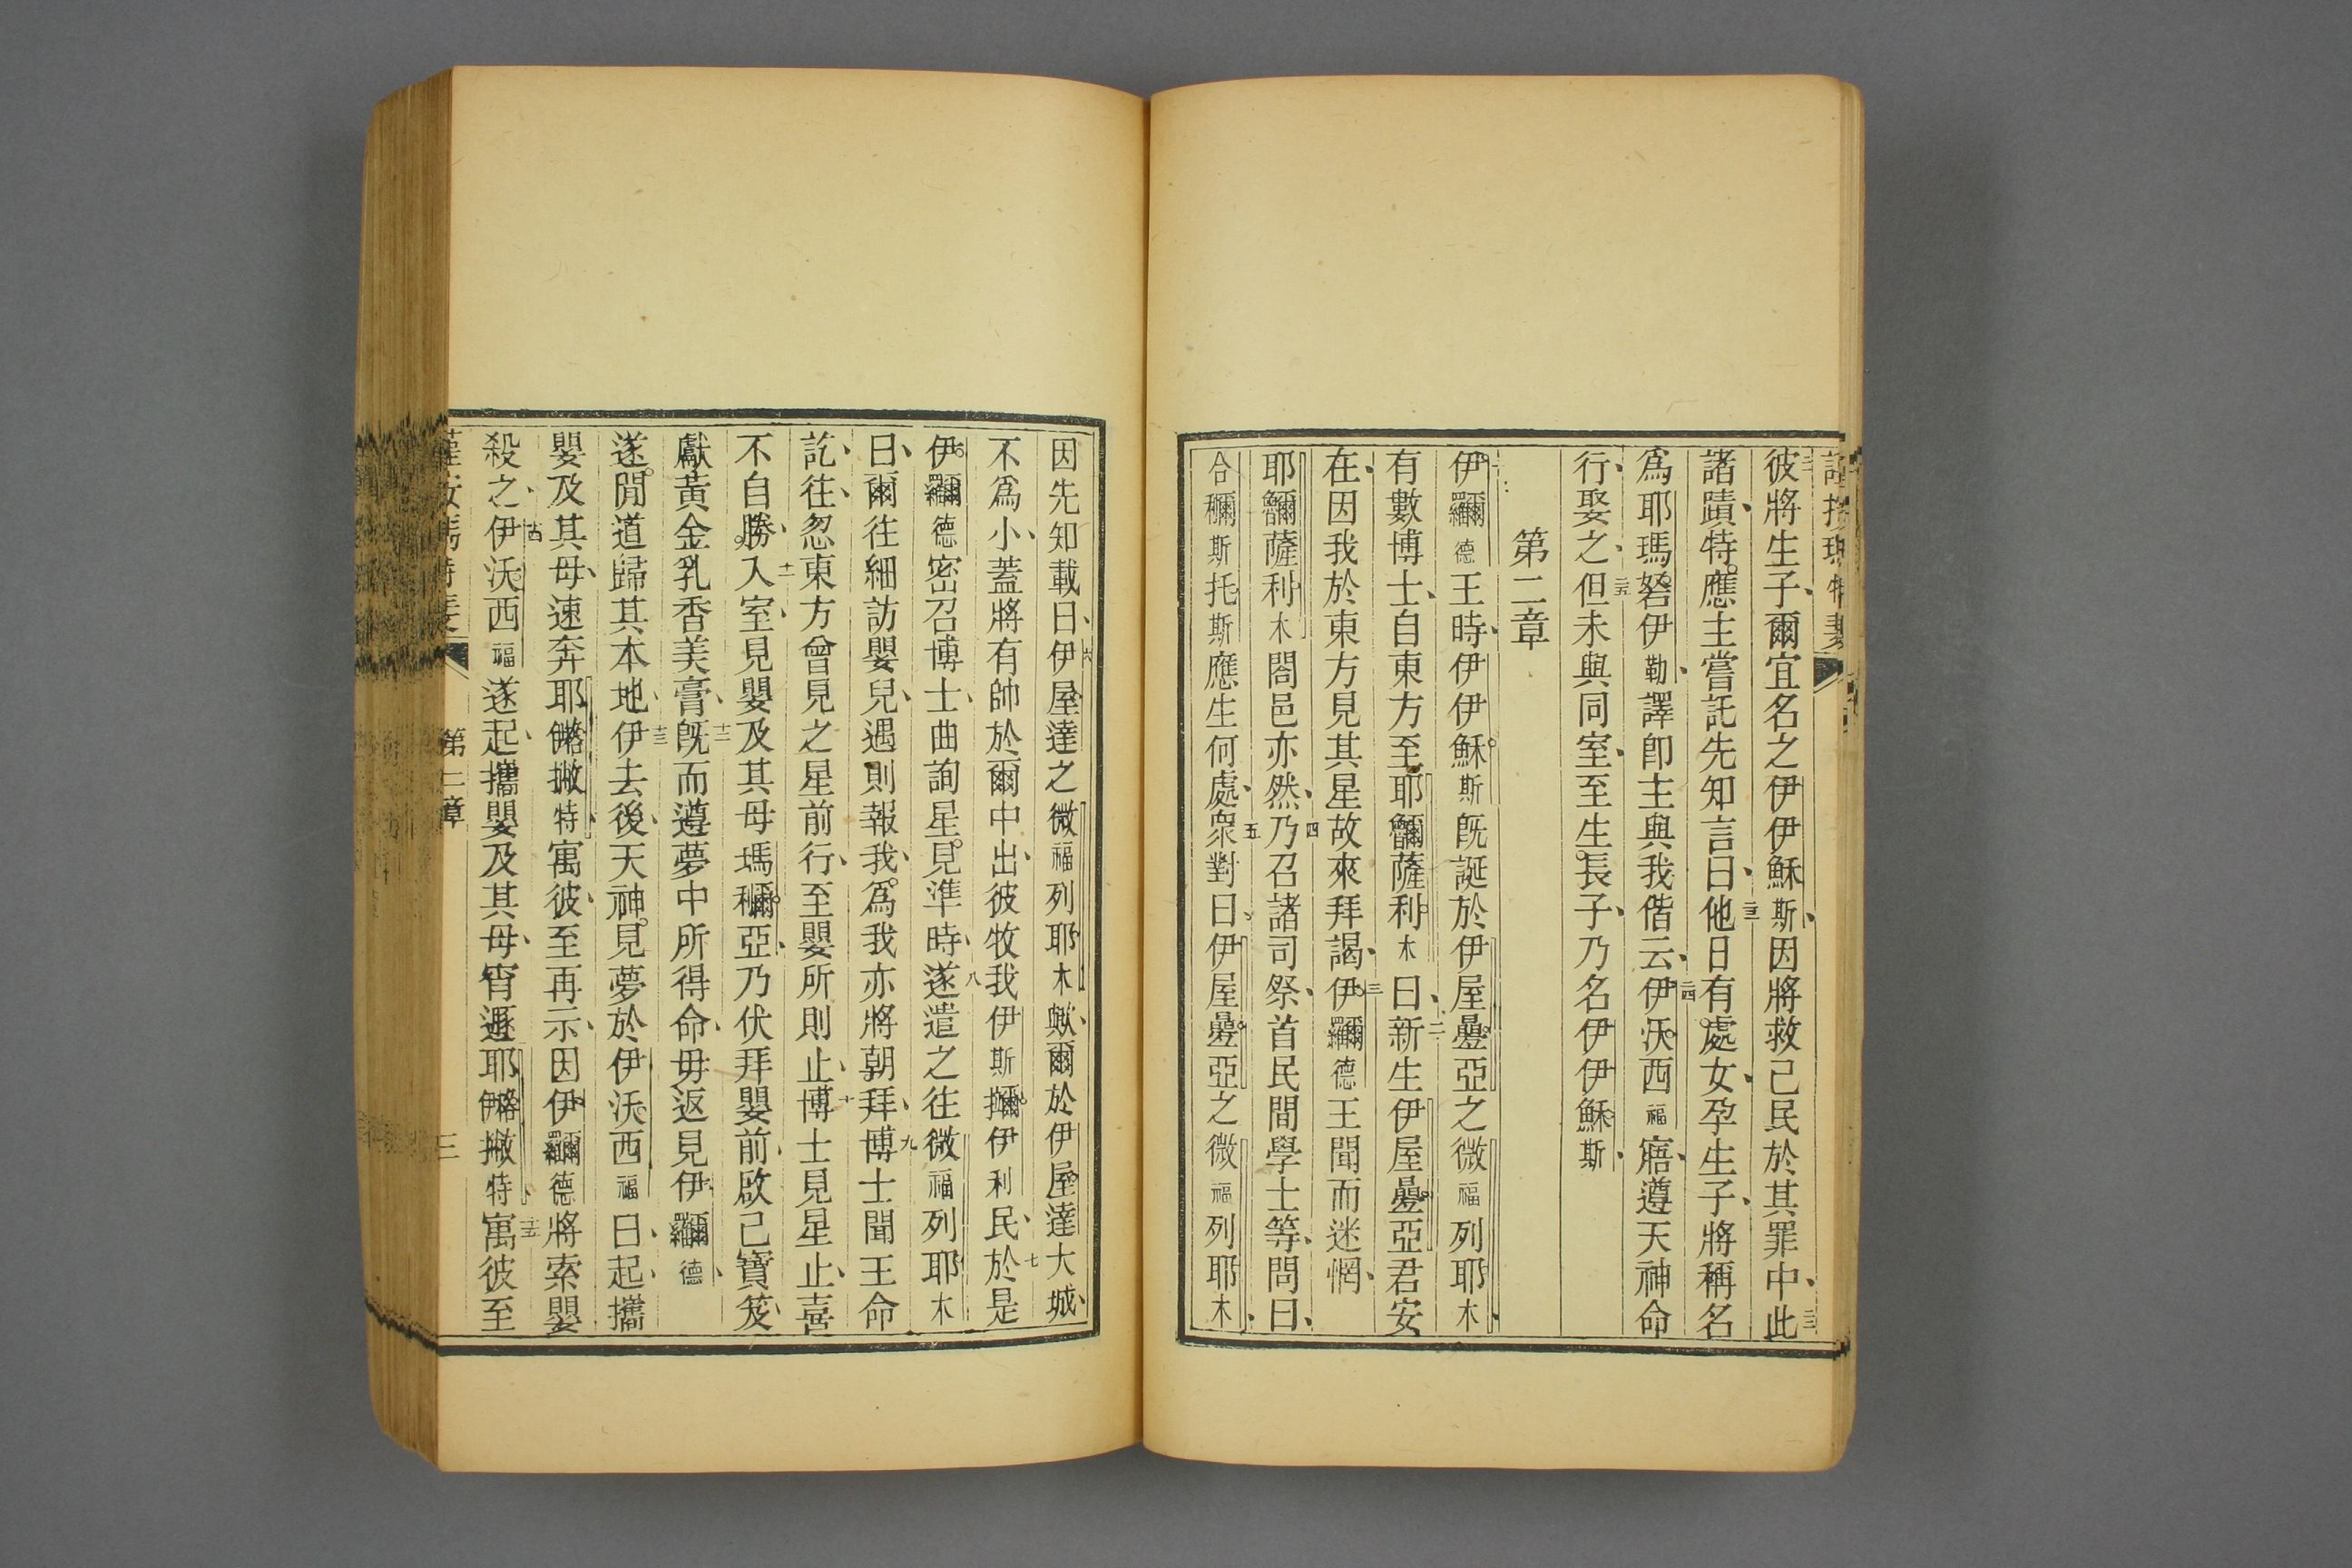 彼將生子爾宜名之伊伊穌斯因將救己民於其罪中此
諸蹟特應主嘗託先知言曰他日有處女孕生子將稱名
為耶瑪弩伊勒譯卽主與我偕云伊沃西福寤遵天神命
行娶之但未與同室至生長子乃名伊伊穌斯
第二章
伊王時伊伊穌斯旣誕於伊屋亞之微福列耶木
有數博士自東方至耶薩利木曰新生伊屋亞君安
在因我於東方見其星故來拜謁伊德王聞而迷惘
耶薩利木閤邑亦然乃召諸司祭首民間學士等問曰
合斯托斯應生何處衆對曰伊屋亞之微福列耶木
因先知載曰伊屋達之微福列耶木歟爾於伊屋達大城
不為小蓋將有帥於爾中出彼牧我伊斯伊利民於是
伊德密召博士曲詢星見準時遂遣之往微福列耶木
曰爾往細訪嬰兒遇則報我為我亦將朝拜博士聞王命
訖往忽東方曾見之星前行至嬰所則止博士見星止喜
不自勝入室見嬰及其母瑪亞乃伏拜嬰前啟己寶笈
獻黃金乳香美膏旣而遵夢中所得命毋返見伊德
遂閒道歸其本地伊去後天神見夢於伊沃西福曰起攜
嬰及其母速奔耶撇特寓彼至再示因伊德將索嬰
殺之伊沃西福遂起攜嬰及其母宵遯耶撇特寓彼至
第二章
三